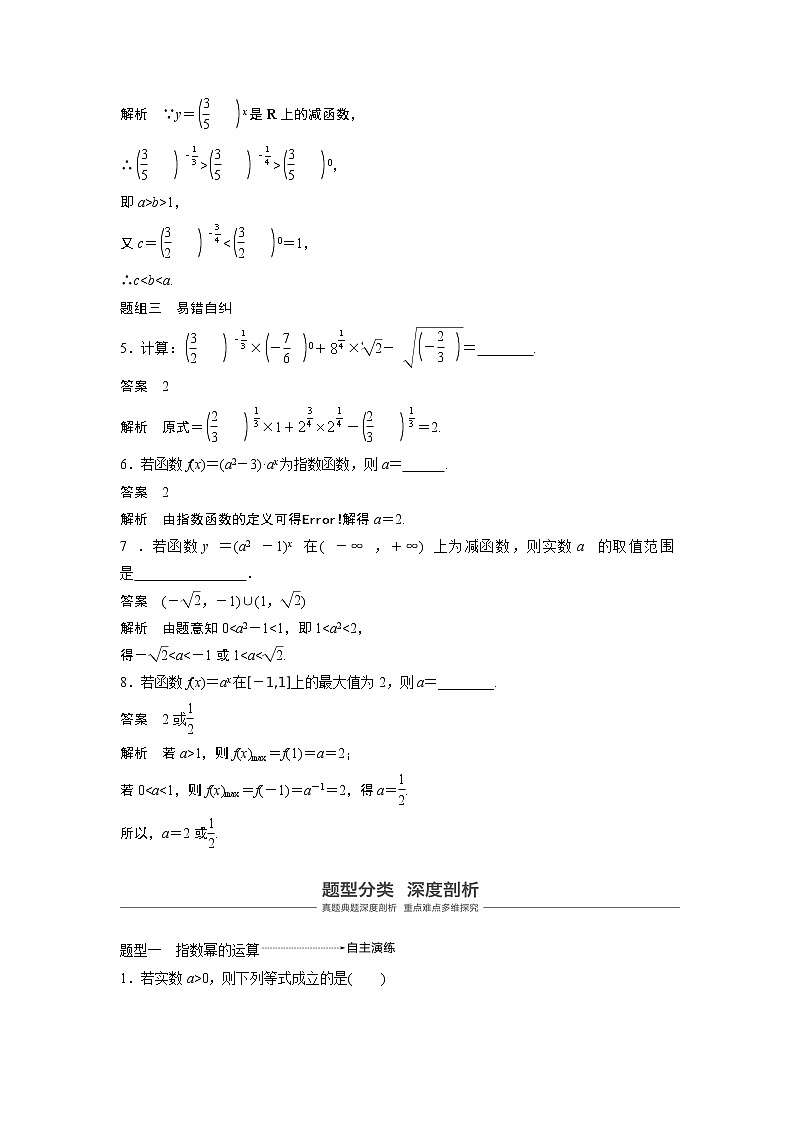 解析　∵y＝(3/5)^x是R上的减函数，
∴(3/5)^(-1/3)>(3/5)^(-1/4)>(3/5)^0，
即a>b>1，
又c＝(3/2)^(-3/4)<(3/2)^0＝1，
∴c<b<a.
题组三　易错自纠
5．计算：(3/2)^(-1/3)×(－7/6)^0＋8^(1/4)×⁴√2－√(－2/3)＝________.
答案　2
解析　原式＝(2/3)^(1/3)×1＋2^(3/4)×2^(1/4)－(2/3)^(1/3)＝2.
6．若函数f(x)＝(a²－3)·a^x为指数函数，则a＝______.
答案　2
解析　由指数函数的定义可得Error!解得a＝2.
7 ．若函数y ＝(a² －1)^x 在( －∞ ，＋∞) 上为减函数，则实数a 的取值范围
是________________．
答案　(－√2，－1)∪(1，√2)
解析　由题意知0<a²－1<1，即1<a²<2，
得－√2<a<－1或1<a<√2.
8．若函数f(x)＝a^x在[－1,1]上的最大值为2，则a＝________.
答案　2或1/2
解析　若a>1，则f(x)max＝f(1)＝a＝2；
若0<a<1，则f(x)max＝f(－1)＝a^－1＝2，得a＝1/2.
所以，a＝2或1/2.
题型分类　深度剖析
真题典题深度剖析　重点难点多维探究
题型一　指数幂的运算 自主演练
1．若实数a>0，则下列等式成立的是(　　)